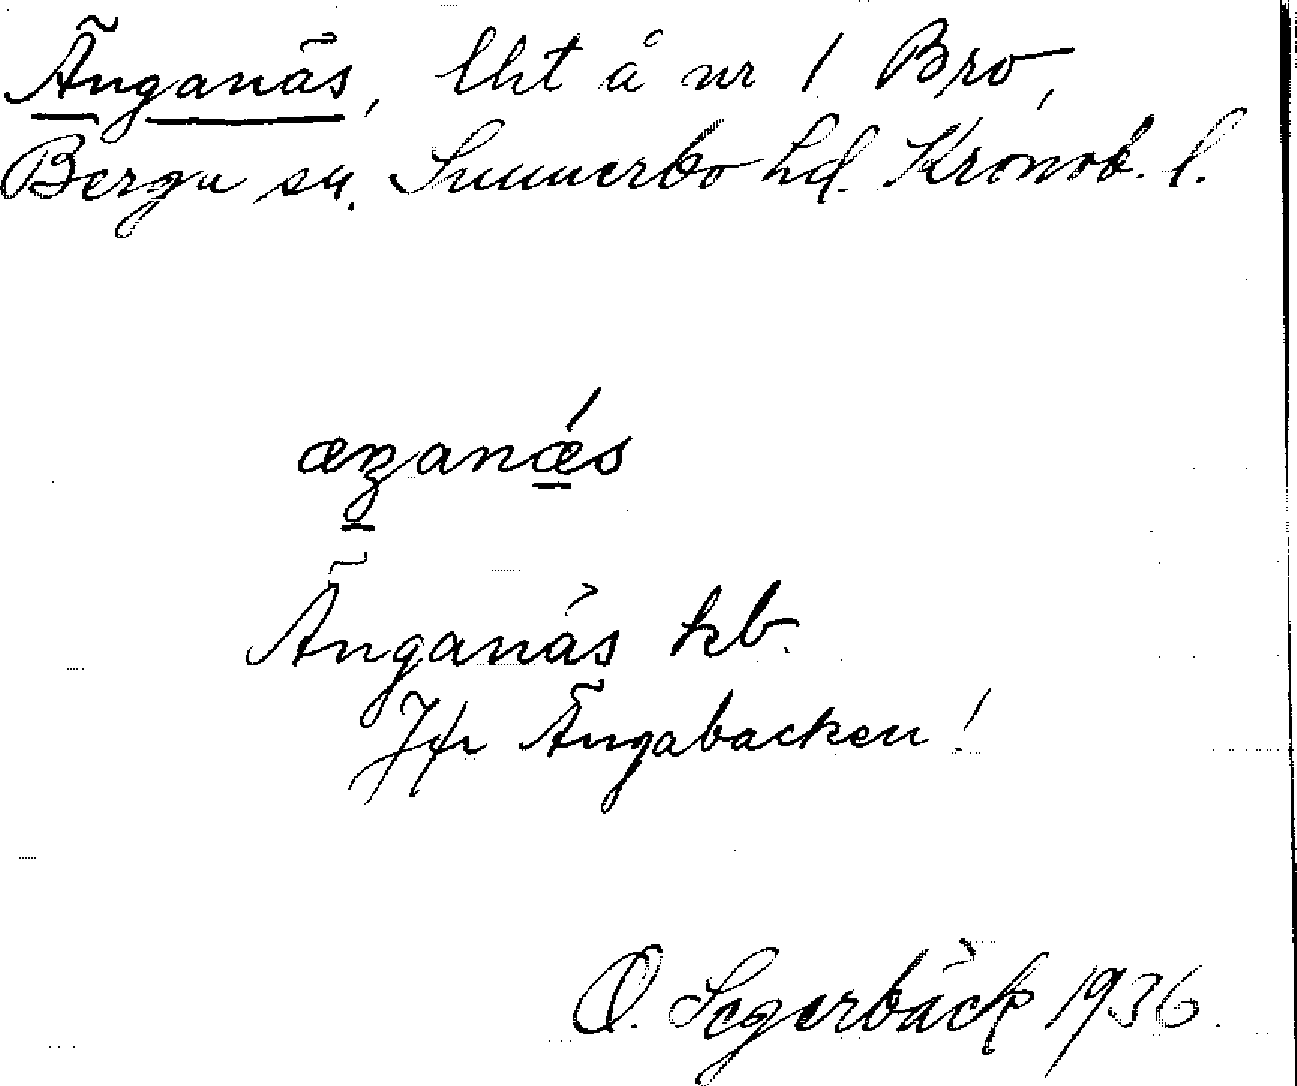 Änganäs, lht å nr 1 Bro,
Berga sn. Sunnerbo hd. Kronob. l.
æŋanæ´s
Änganäs kb.
Jfr Ängabacken!
O. Segerbäck 1936.